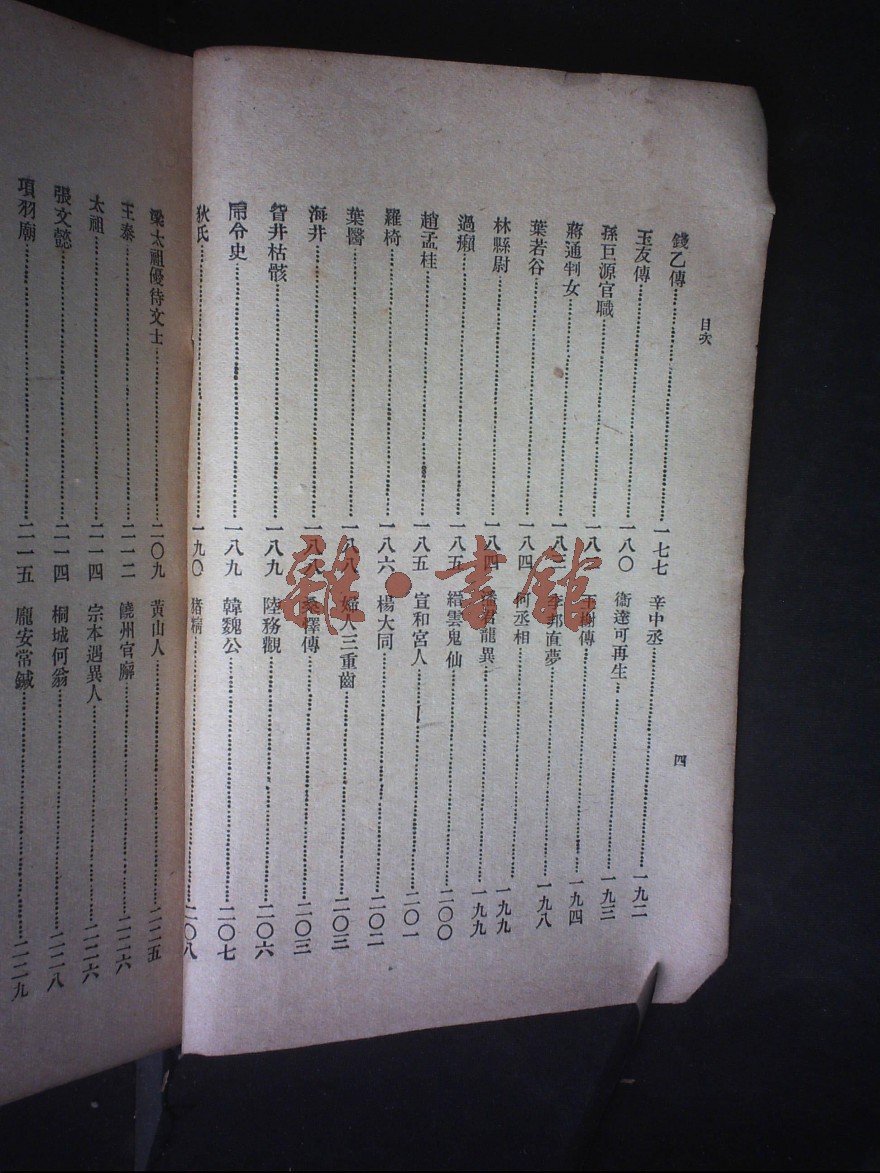 目次
四
錢乙傳 一七七
玉友傳 一八〇
孫巨源官職 一八
蔣通判女 一八二
葉若谷 一八四
林縣尉 一八四
過癩 一八五
趙孟桂 一八五
羅椅 一八六
葉醫 一八八
海井 一八八
眢井枯骸 一八九
令史 一八九
狄氏 一九〇
辛中丞 一九二
衞達可再生 一九三
王榭傳 一九四
李邦直夢 一九八
何丞相 一九九
龍異 一九九
縉雲鬼仙 二〇〇
宣和宮人 二〇一
楊大同 二〇二
婦人三重齒 二〇三
桑懌傳 二〇三
陸務觀 二〇六
韓魏公 二〇七
豬精 二〇八
梁太祖優待文士 二〇九
王泰 二一二
太祖 二一四
張文懿 二一四
項羽廟 二一五
黃山人 二二五
饒州官廨 二二六
宗本遇異人 二二六
桐城何翁 二二八
龐安常鍼 二二九
雜·書館